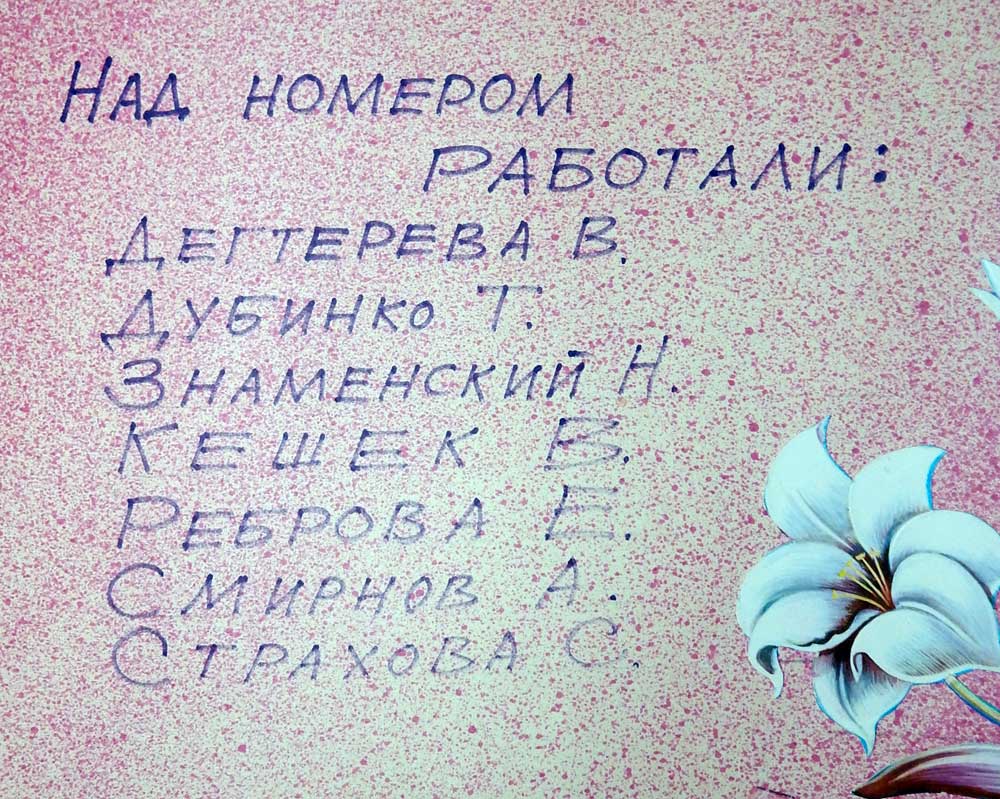 Над номером
работали:
Дегтерева В.
Дубинко Т.
Знаменский Н.
Кешек В.
Реброва Е.
Смирнов А.
Страхова С.